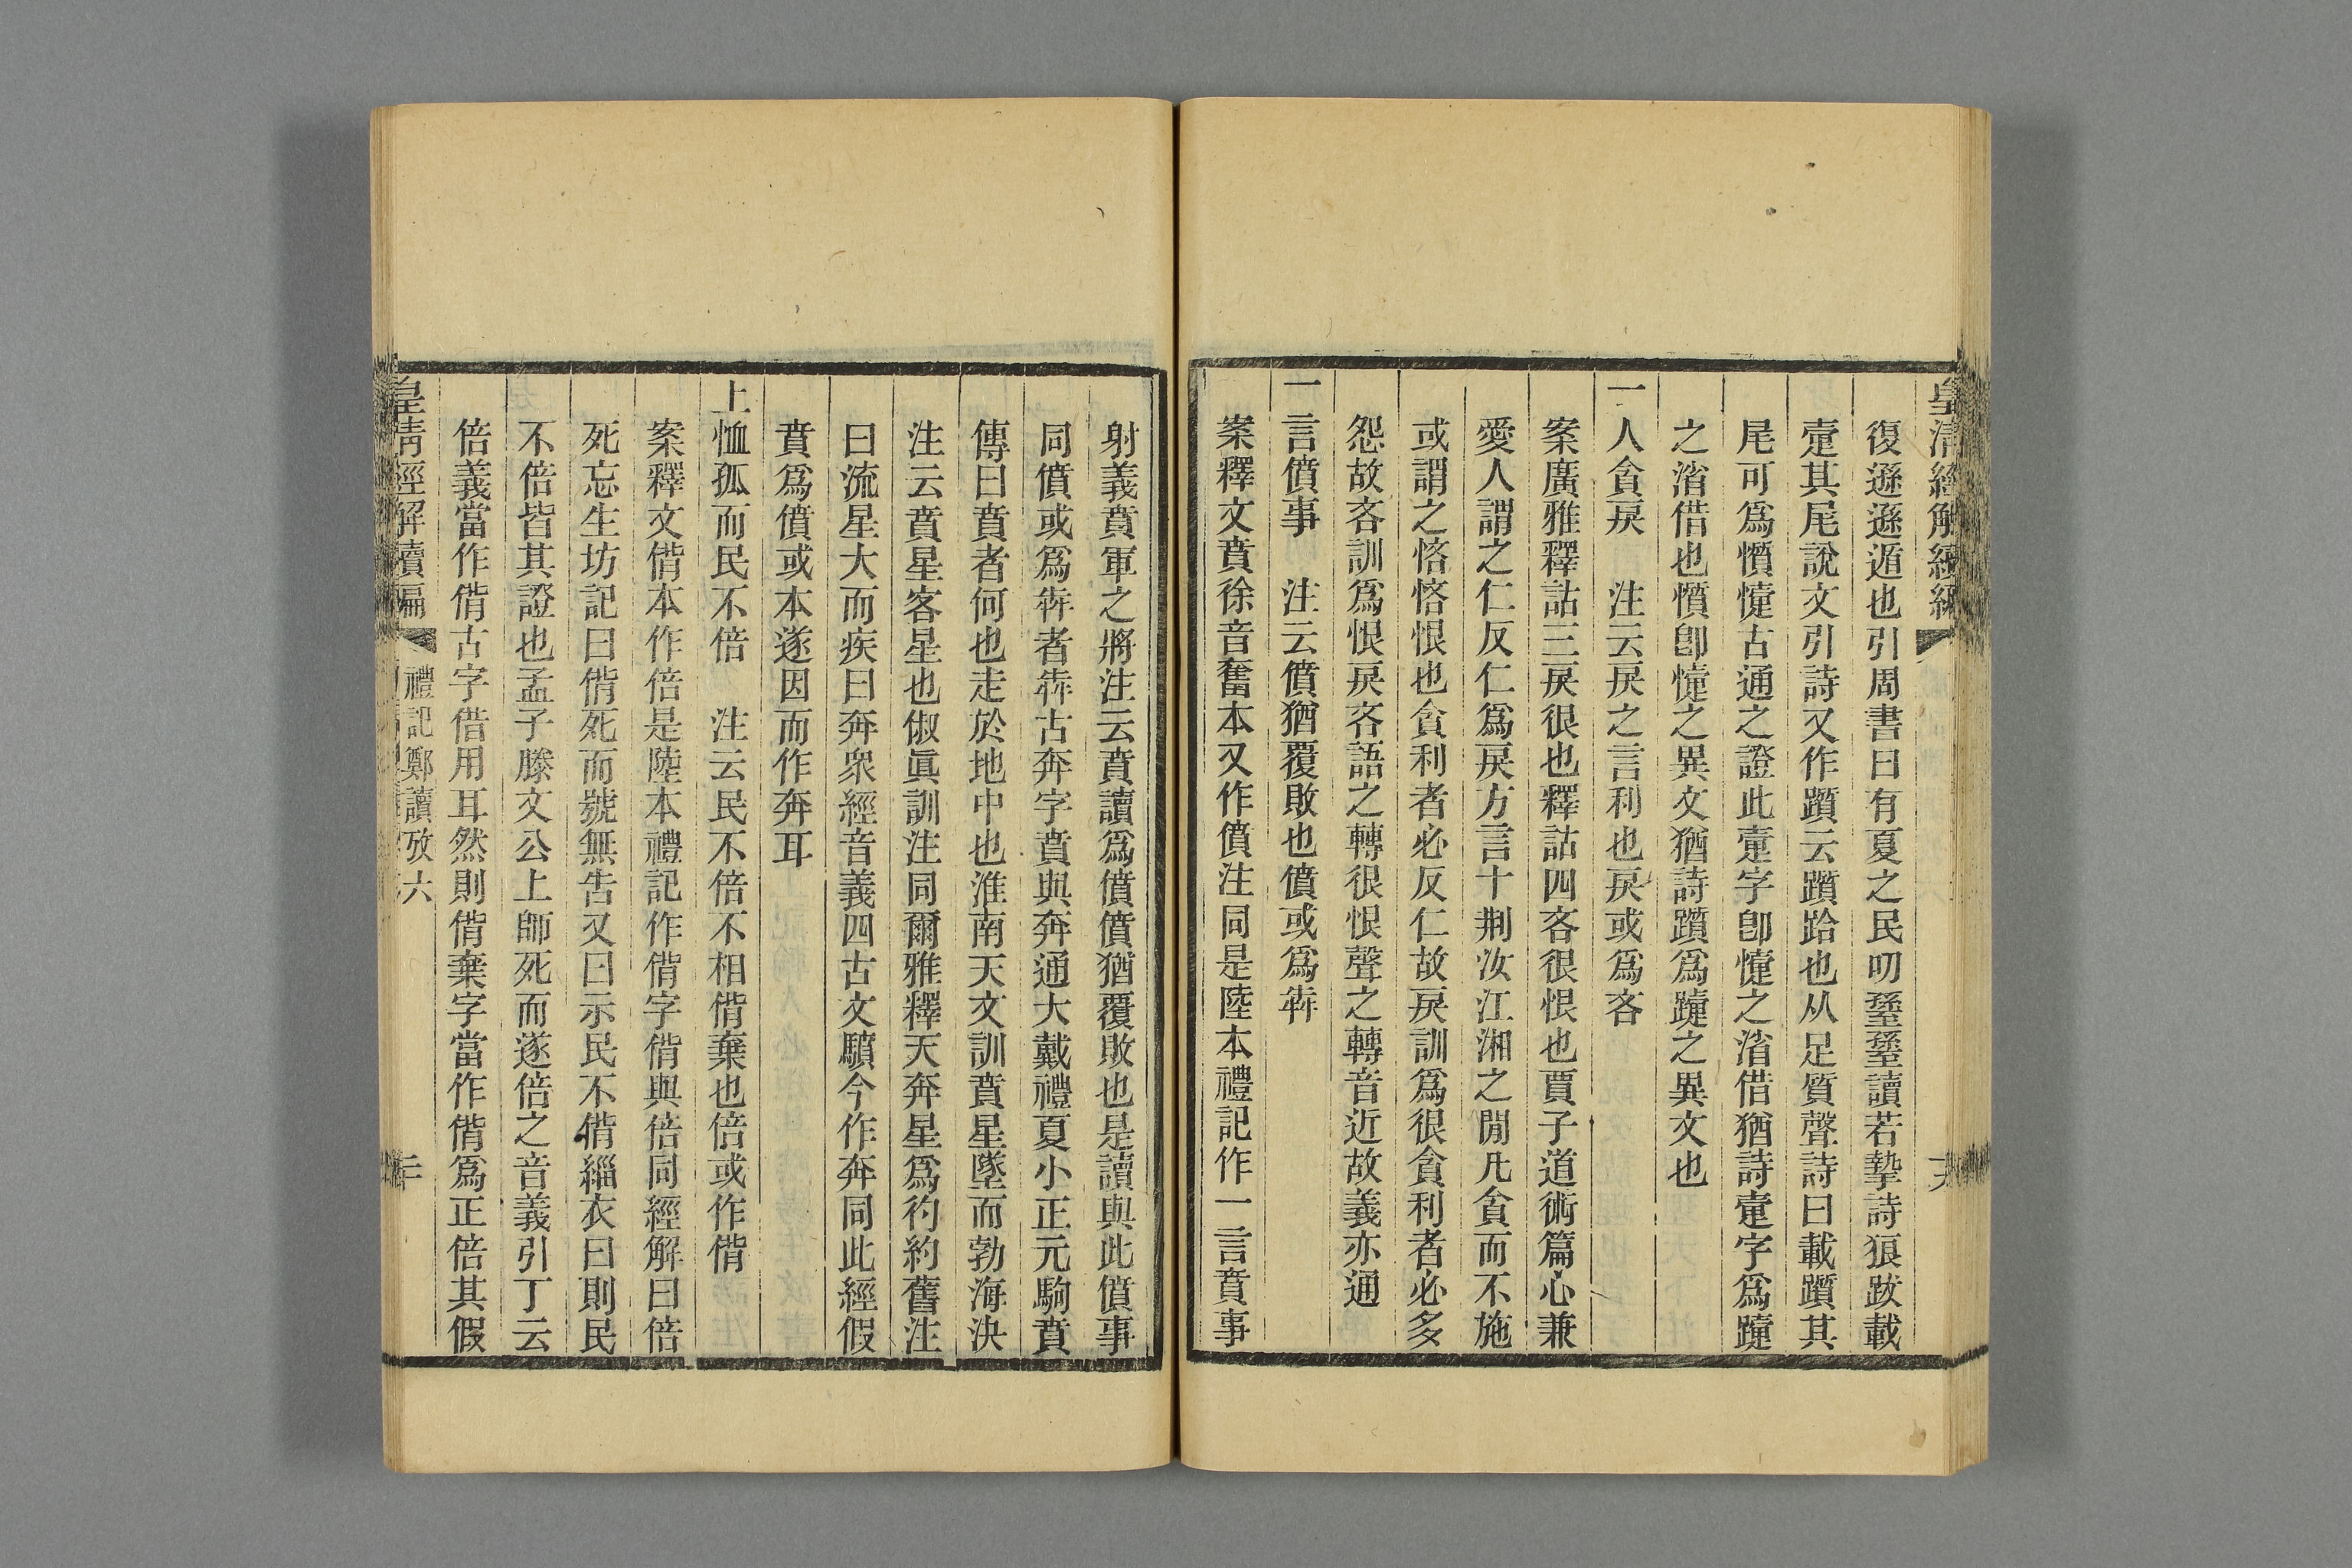 皇清經解續編
復遜遜遁也引周書曰有夏之民叨𡠗𡠗讀若摯詩狼跋載
疐其尾說文引詩又作躓云躓跲也从足質聲詩曰載躓其
尾可爲懫懥古通之證此疐字卽懥之渻借猶詩疐字爲躓
之渻借也懫卽懥之異文猶詩躓爲𨆫之異文也
一人貪戾　注云戾之言利也戾或爲吝
案廣雅釋詁三戾很也釋詁四吝很恨也賈子道術篇心兼
愛人謂之仁反仁爲戾方言十荆汝江湘之閒凡貪而不施
或謂之悋悋恨也貪利者必反仁故戾訓爲很貪利者必多
怨故吝訓爲恨戾吝語之轉很恨聲之轉音近故義亦通
一言僨事　注云僨猶覆敗也僨或爲犇
案釋文賁徐音奮本又作僨注同是陸本禮記作一言賁事
射義賁軍之將注云賁讀爲僨僨猶覆敗也是讀與此僨事
同僨或爲犇者犇古奔字賁與奔通大戴禮夏小正元駒賁
傳曰賁者何也走於地中也淮南天文訓賁星墜而勃海決
注云賁星客星也俶眞訓注同爾雅釋天奔星爲彴約舊注
曰流星大而疾曰奔衆經音義四古文驞今作奔同此經假
賁爲僨或本遂因而作奔耳
上恤孤而民不倍　注云民不倍不相偝棄也倍或作偝
案釋文偝本作倍是陸本禮記作偝字偝與倍同經解曰倍
死忘生坊記曰偝死而號無告又曰示民不偝緇衣曰則民
不倍皆其證也孟子滕文公上師死而遂倍之音義引丁云
倍義當作偝古字借用耳然則偝棄字當作偝爲正倍其假
皇清經解續編　禮記鄭讀攷六　二十